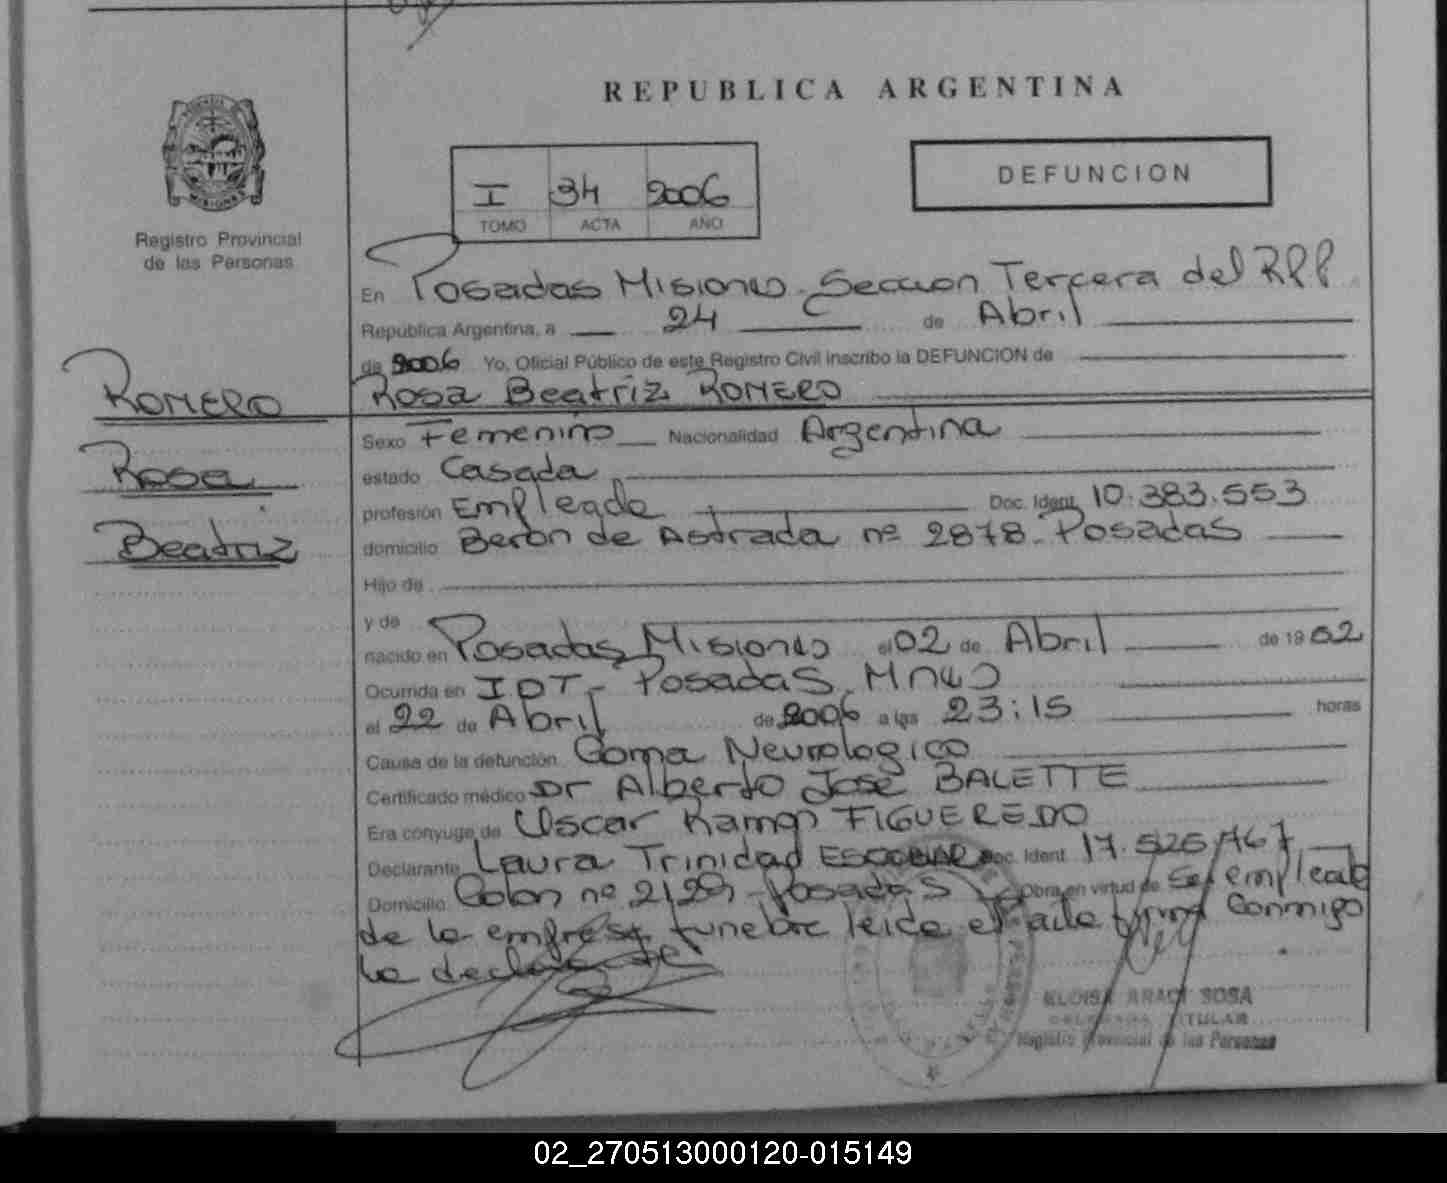 REPUBLICA ARGENTINA
I 34 2006
TOMO ACTA AÑO
DEFUNCION
MISIONES
Registro Provincial
de las Personas
ROMERO
Rosa
Beatriz
En Posadas Misiones Seccion Tercera del RPP
Republica Argentina, a 24 de Abril
de 2006 Yo, Oficial Público de este Registro Civil inscribo la DEFUNCION de
Rosa Beatriz ROMERO
Sexo Femenino Nacionalidad Argentina
estado Casada
profesión Empleada Doc. Ident. 10.383.553
domicilio Beron de Astrada nº 2878 - Posadas
Hijo de
y de
nacido en Posadas Misiones el 02 de Abril de 19 52
Ocurrida en IOT - Posadas Mnes
el 22 de Abril de 2006 a las 23:15 horas
Causa de la defunción Coma Neurologico
Certificado médico Dr Alberto José BALETTE
Era conyuge de Oscar Ramon FIGUEREDO
Declarante Laura Trinidad ESCOBAR Doc. Ident. 17.525.767
Domicilio Colon nº 2129 - Posadas Obra en virtud de ser empleada
de la empresa funebre leida el acta firma conmigo
la declarante
ELOISA ARACI SOSA
DELEGADA TITULAR
Registro Provincial de las Personas
02_270513000120-015149